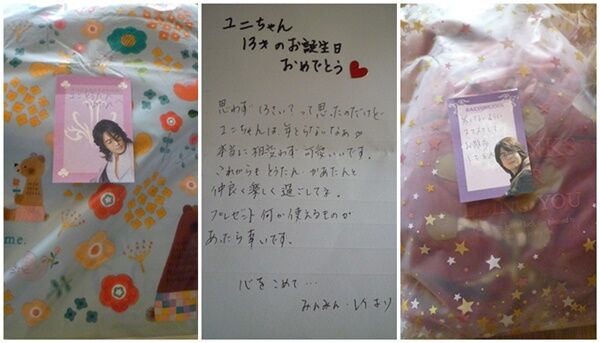 ユニちゃんへ
me.
ユニちゃん
13才のお誕生日
おめでとう
思わず 13さい？って思ったのだけど
ユニちゃんは年とらないなぁ
本当に相変わらず可愛いいです。
これからもとうたん かあたんと
仲良く楽しく過ごしてね。
プレゼント何か使えるものが
あったら幸いです。
心をこめて…
みんみん・レイより
THANKS
YOU